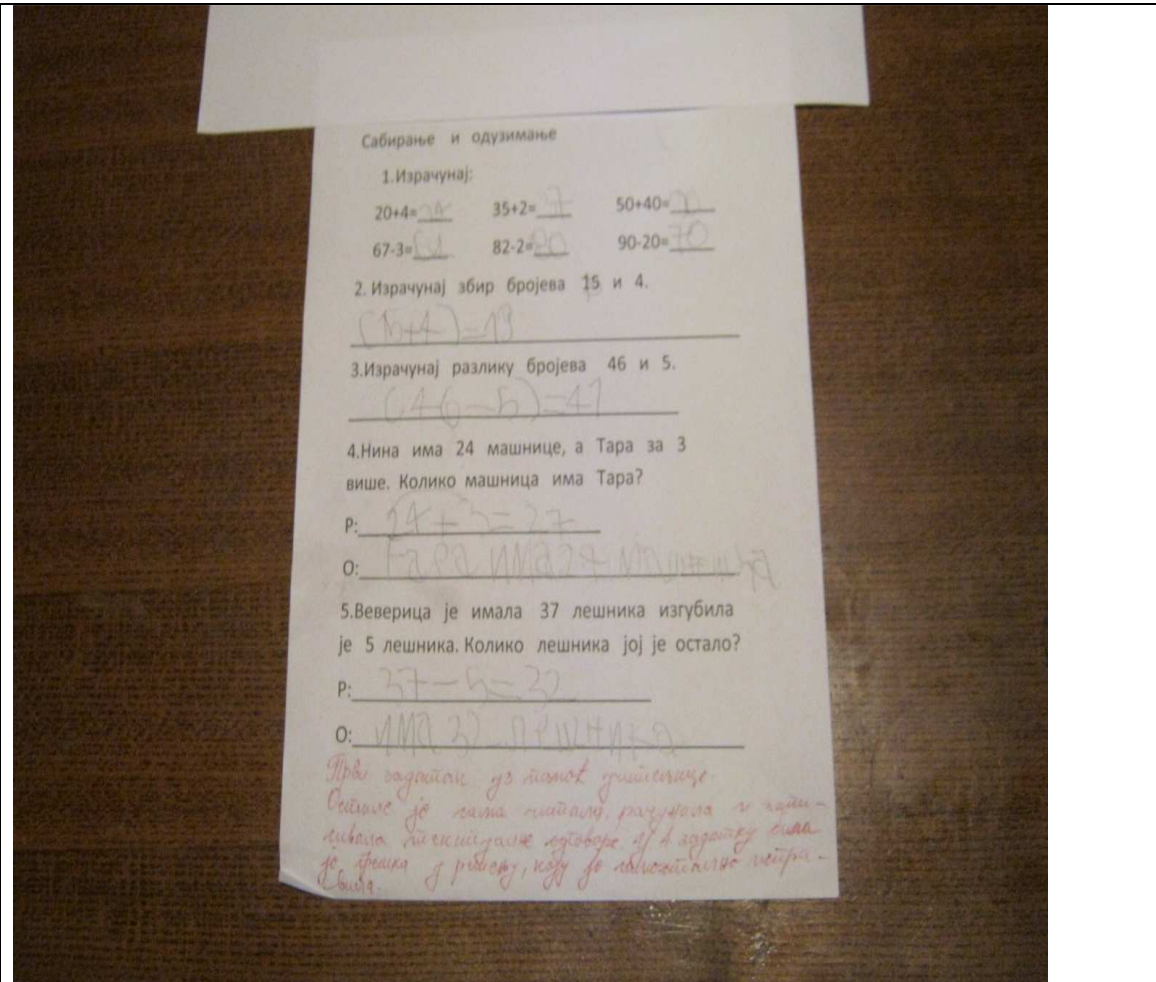 Сабирање и одузимање
1.Израчунај:
20+4=24 35+2=37 50+40=90
67-3=64 82-2=80 90-20=70
2. Израчунај збир бројева 15 и 4.
(15+4)=19
3.Израчунај разлику бројева 46 и 5.
(46-5)=41
4.Нина има 24 машнице, а Тара за 3
више. Колико машница има Тара?
Р: 24+3=27
О: има
5.Веверица је имала 37 лешника изгубила
је 5 лешника. Колико лешника јој је остало?
Р: 37-5=32
О: има 32 лешника
Први задатак уз помоћ учитељице.
Остале је сама читала, рачунала и запи-
сивала одговоре. У 4 задатку била
је грешка у , коју је самостално испра-
вила.